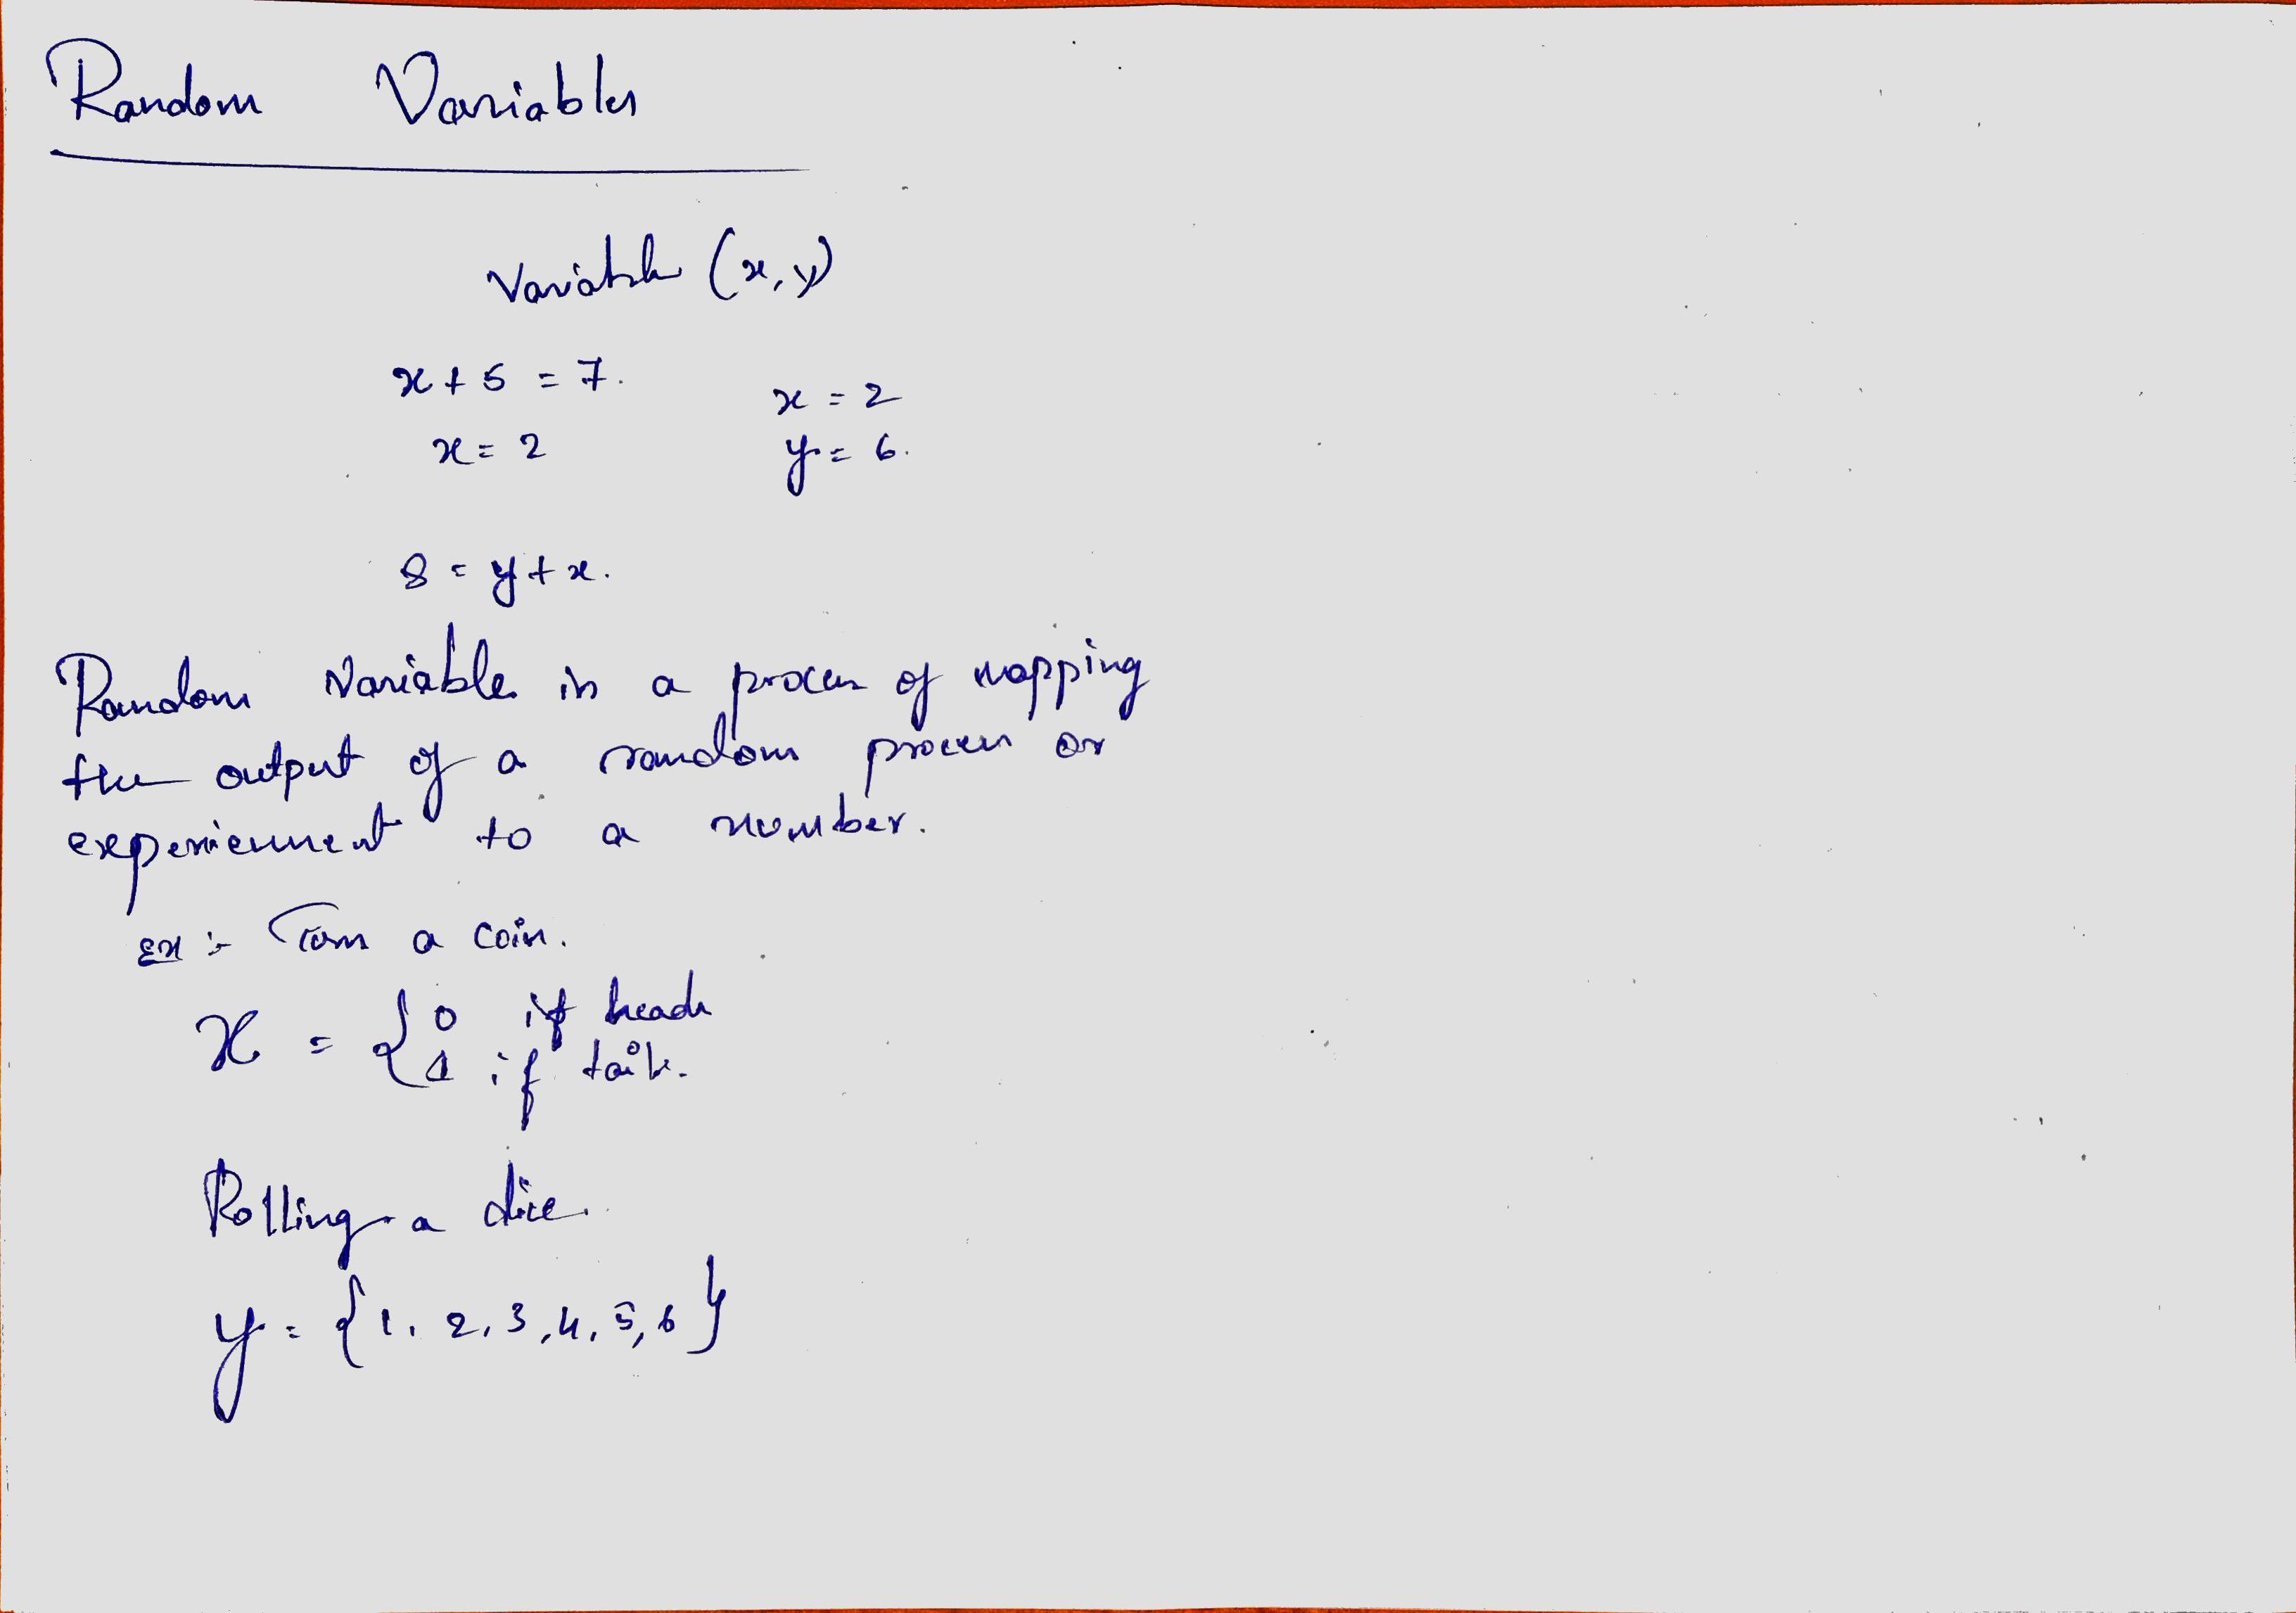 Random Variables
Variable (x, y)
x + 5 = 7.
x = 2
x = 2
y = 6.
8 = y + x.
Random Variable is a process of mapping
the output of a random process or
experiement to a number.
Ex :- Toss a coin.
X = { 0 if heads
1 if tails.
Rolling a dice.
y = { 1, 2, 3, 4, 5, 6 }